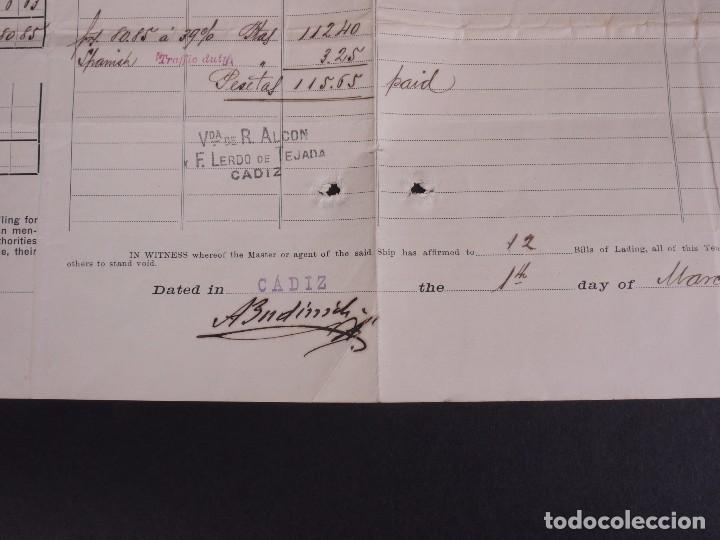 0 85
80 85
80.85 á 39% Ptas 112.40
Spanish Traffic duty " 3.25
Pesetas 115.65 paid
VDA DE R. ALCON
Y F. LERDO DE TEJADA
CADIZ
ling for
n men-
thorities
e, their
IN WITNESS whereof the Master or agent of the said Ship has affirmed to 12 Bills of Lading, all of this Ten
others to stand void.
Dated in CÁDIZ the 1th day of Marc
todocoleccion.net
todocoleccion